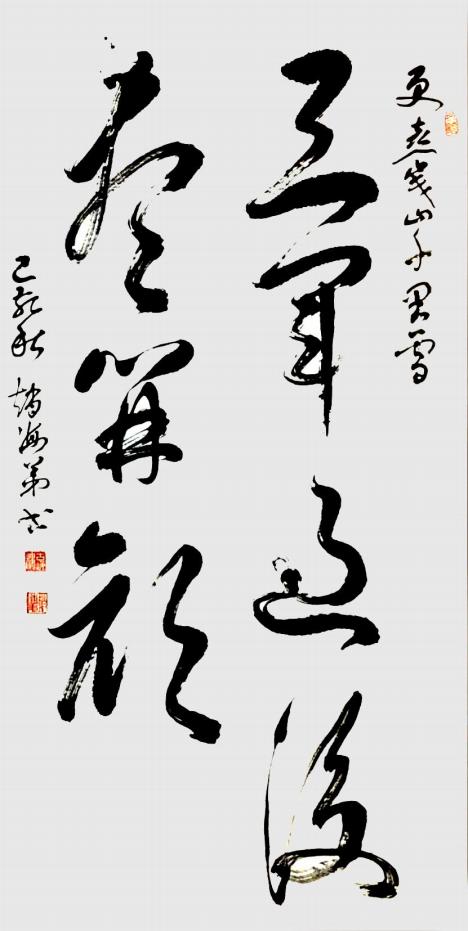 更喜岷山千里雪
三軍過後
盡開顏
己亥秋 趙海书